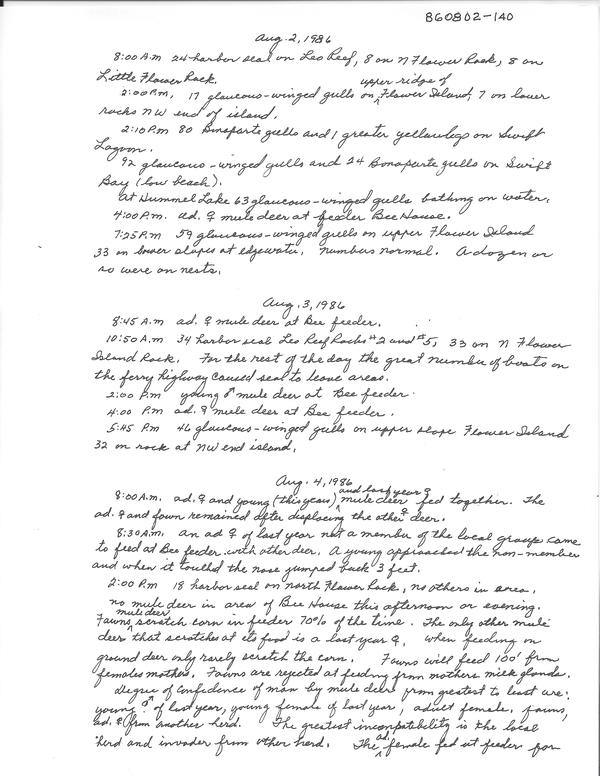 860802-140
Aug. 2, 1986
8:00 A.m 24 harbor seal on Leo Reef, 8 on N Flower Rock, 8 on
Little Flower Rock.
2:00 P.m. 17 glaucous-winged gulls on upper ridge of Flower Island, 7 on lower
rocks NW end of island.
2:10 P.m 80 Bonaparte gulls and 1 greater yellowlegs on Swift
Lagoon.
92 glaucous-winged gulls and 24 Bonaparte gulls on Swift
Bay (low beach).
At Hummel Lake 63 glaucous-winged gulls bathing on water.
4:00 P.m. ad. ♀ mule deer at feeder Bee House.
7:25 P.m 59 glaucous-winged gulls on upper Flower Island
33 on lower slopes at edgewater. numbers normal. A dozen or
so were on nests.
Aug. 3, 1986
8:45 A.m ad. ♀ mule deer at Bee feeder.
10:50 A.m. 34 harbor seal Leo Reef Rocks #2 and #5, 33 on N Flower
Island Rock. For the rest of the day the great number of boats on
the ferry highway caused seal to leave areas.
2:00 P.m young ♂ mule deer at Bee feeder.
4:00 P.m ad. ♀ mule deer at Bee feeder.
5:45 P.m 46 glaucous-winged gulls on upper slope Flower Island
32 on rock at NW end island.
Aug. 4, 1986
8:00 A.m. ad. ♀ and young (this years) and last year ♀ mule deer fed together. The
ad. ♀ and fawn remained after displacing the other ♀ deer.
8:30 A.m. an ad ♀ of last year not a member of the local group came
to feed at Bee feeder with other deer. A young approached the non-member
and when it touched the nose jumped back 3 feet.
2:00 P.m 18 harbor seal on north Flower Rock, no others in area.
no mule deer in area of Bee House this afternoon or evening.
Fawns mule deer scratch corn in feeder 70% of the time. The only other mule
deer that scratches at its food is a last year ♀. When feeding on
ground deer only rarely scratch the corn. Fawns will feed 100' from
females mothers. Fawns are rejected at feeding from mothers milk glands.
Degree of confidence of man by mule deer from gestest to least are:
young ♂ of last year, young female of last year, adult female, fawns,
ad. ♀ from another herd. The greatest incompatibility is the local
herd and invader from other herd. The ad. female fed at feeder for